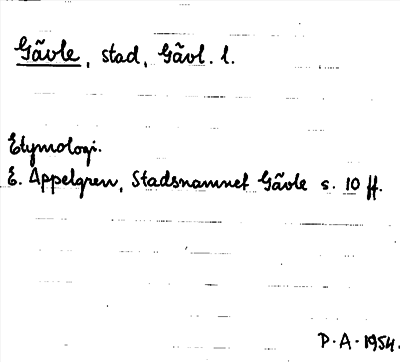 Gävle, stad, Gävl. l.
Etymologi.
E. Appelgren, Stadsnamnet Gävle s. 10 ff.
P. A. 1954.